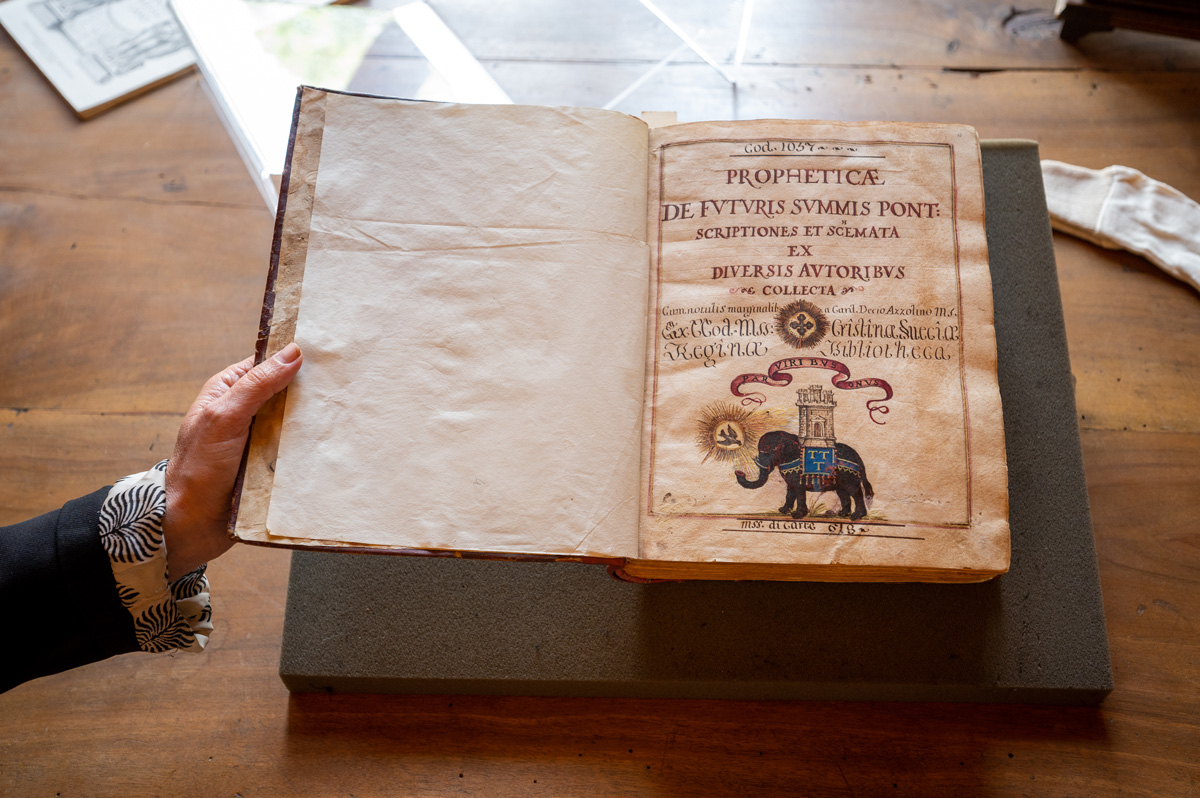 Cod. 1037
PROPHETICÆ
DE FVTVRIS SVMMIS PONT:
SCRIPTIONES ET SCHEMATA
EX
DIVERSIS AVTORIBVS
COLLECTA
Cum notulis marginalib a Card. Decio Azzolino m.s.
Ex Cod. Ms: Cristinæ Sueciæ
Reginæ Bibliotheca
PAR VIRIBVS ONVS
TT
T
mss. di Carte 618